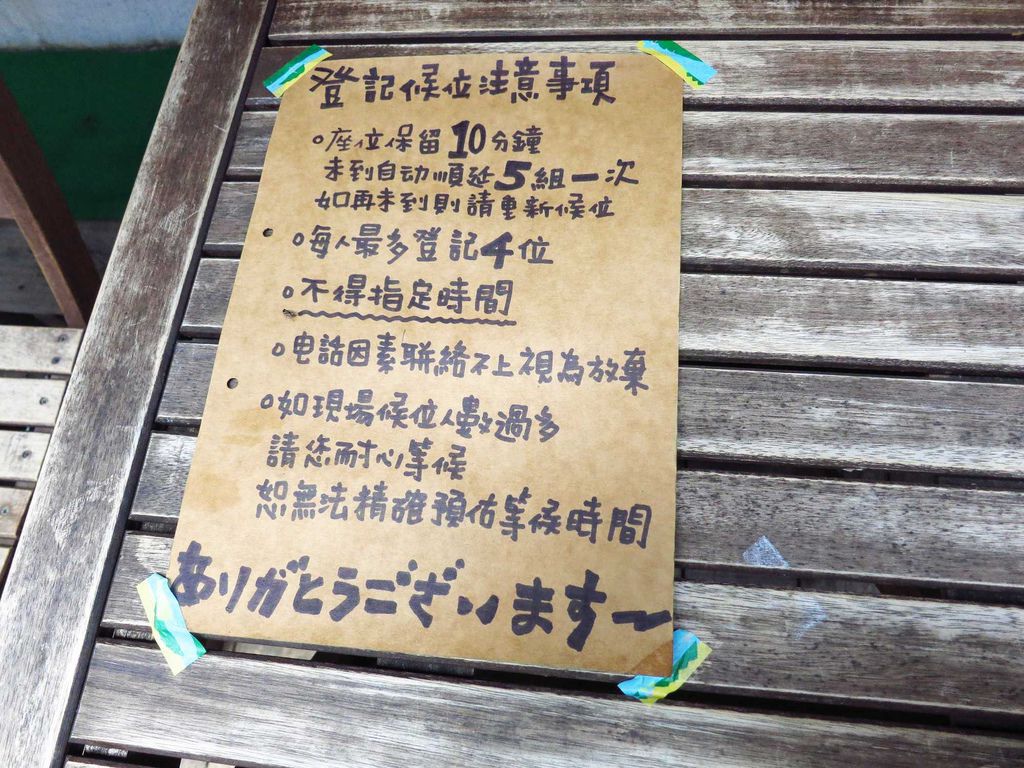 登記候位注意事項
座位保留10分鐘
未到自动順延5組一次
如再未到則請重新候位
每人最多登記4位
不得指定時間
电話因素聯絡不上視為放棄
如現場候位人數過多
請您耐心等候
恕無法精確預估等候時間
ありがとうございます〜